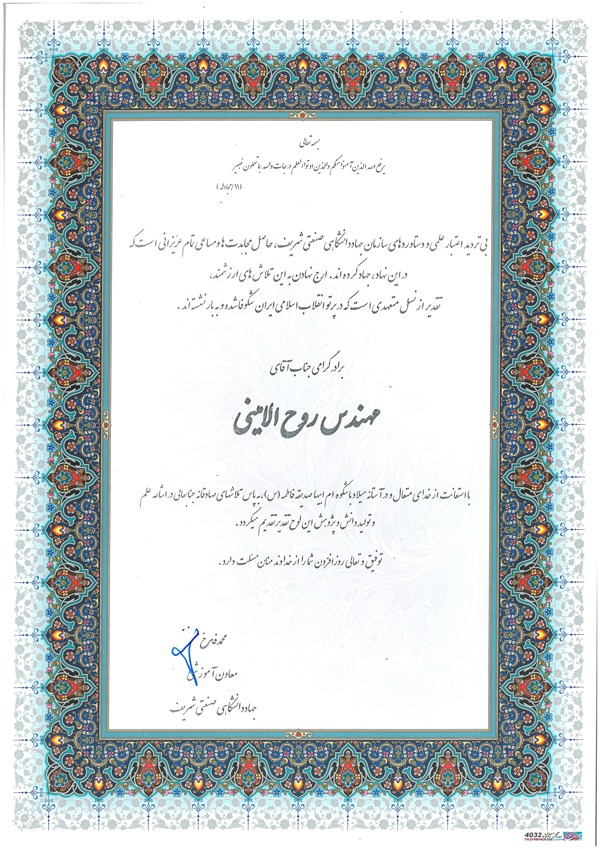 بسمه تعالی
یرفع الله الذین آمنوا منکم والذین اوتوا العلم درجات والله بما تعملون خبیر
(۱۱/مجادله)
بی تردید اعتبار علمی و دستاوردهای سازمان جهاد دانشگاهی صنعتی شریف، حاصل مجاهدت ها و مساعی تمام عزیزانی است که
در این نهاد، جهاد کرده اند. ارج نهادن به این تلاش های ارزشمند،
تقدیر از نسل متعهدی است که در پرتو انقلاب اسلامی ایران شکوفا شده و به بار نشسته اند.
برادر گرامی جناب آقای
مهندس روح الامینی
با استعانت از خدای متعال و در آستانه میلاد باشکوه ام ابیها صدیقه فاطمه (س)، به پاس تلاشهای صادقانه جنابعالی در اشاعه علم
و تولید دانش و پژوهش این لوح تقدیر تقدیم میگردد.
توفیق و تعالی روزافزون شما را از خداوند منان مسئلت دارد.
محمد فلاح
معاون آموزش
جهاد دانشگاهی صنعتی شریف
4032
TAZHIBHOUSE.COM